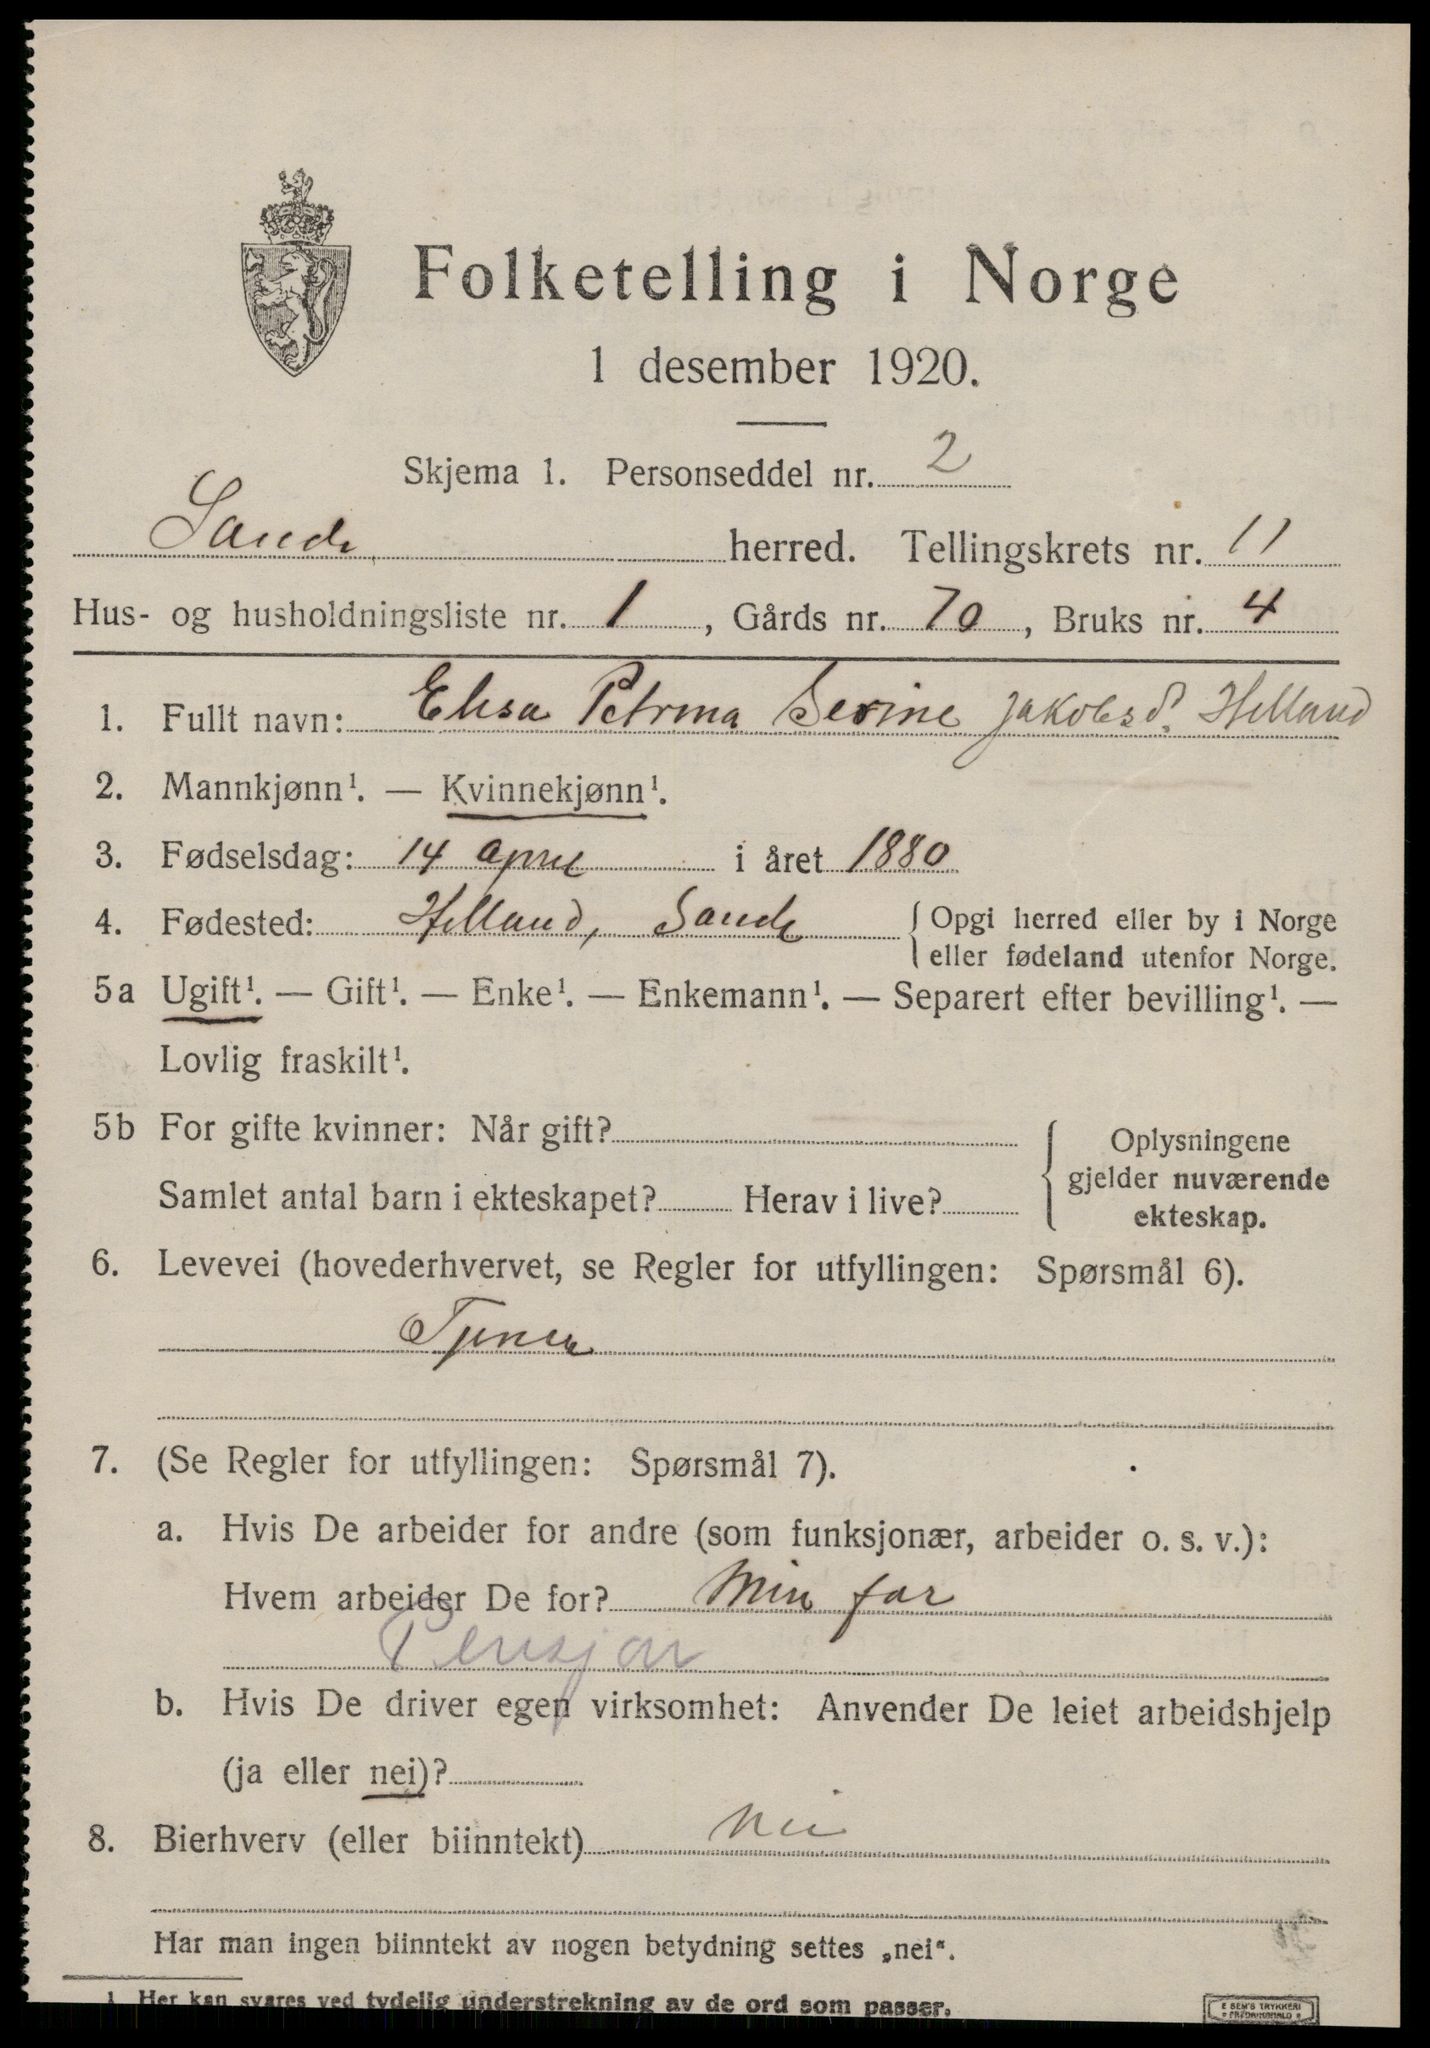 Folketelling i Norge
1 desember 1920.
Skjema 1. Personseddel nr. 2
Sande herred. Tellingskrets nr. 11
Hus- og husholdningsliste nr. 1, Gårds nr. 70, Bruks nr. 4
1. Fullt navn: Elisa Petrina Serine Jakobsd. Helland
2. Mannkjønn¹. — Kvinnekjønn¹.
3. Fødselsdag: 14 april i året 1880
4. Fødested: Helland, Sande { Opgi herred eller by i Norge
eller fødeland utenfor Norge.
5a Ugift¹. — Gift¹. — Enke¹. — Enkemann¹. — Separert efter bevilling¹. —
Lovlig fraskilt¹.
5b For gifte kvinner: Når gift?
Samlet antal barn i ekteskapet? Herav i live?
{ Oplysningene
gjelder nuværende
ekteskap.
6. Levevei (hovederhvervet, se Regler for utfyllingen: Spørsmål 6).
Tjener
7. (Se Regler for utfyllingen: Spørsmål 7).
a. Hvis De arbeider for andre (som funksjonær, arbeider o. s. v.):
Hvem arbeider De for? Min far
Pensjon
b. Hvis De driver egen virksomhet: Anvender De leiet arbeidshjelp
(ja eller nei)?
8. Bierhverv (eller biinntekt) Nei
Har man ingen biinntekt av nogen betydning settes „nei“.
1. Her kan svares ved tydelig understrekning av de ord som passer.
E SEM'S TRYKKERI
FREDRIKSHALD